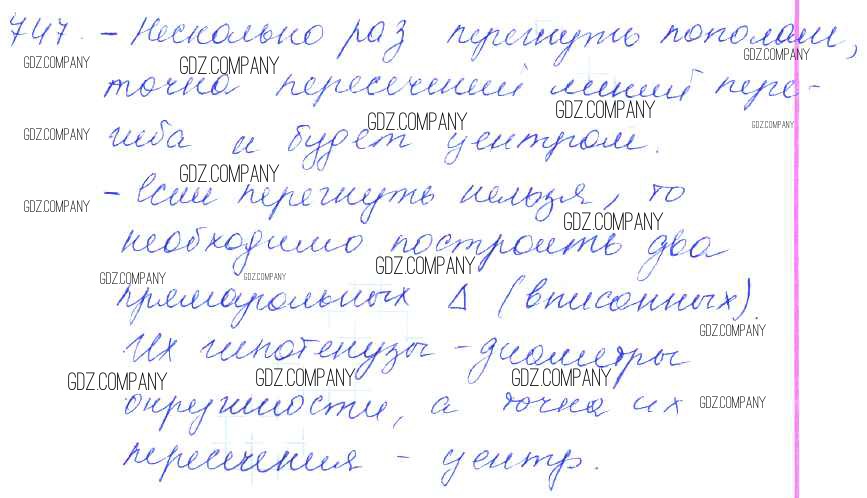 747. – Несколько раз перегнуть пополам,
GDZ.COMPANY GDZ.COMPANY GDZ.COMPANY
точка пересечений линий пере-
GDZ.COMPANY
GDZ.COMPANY GDZ.COMPANY GDZ.COMPANY
гиба и будет центром.
GDZ.COMPANY
– Если перегнуть нельзя, то
GDZ.COMPANY GDZ.COMPANY
необходимо построить два
GDZ.COMPANY GDZ.COMPANY GDZ.COMPANY
прямоугольных Δ (вписанных).
GDZ.COMPANY
Их гипотенузы – диаметры
GDZ.COMPANY GDZ.COMPANY GDZ.COMPANY
окружности, а точка их GDZ.COMPANY
пересечения – центр.